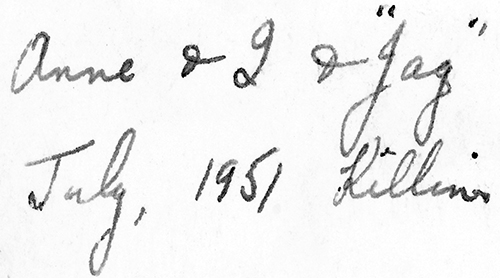 Anne & I & "Jag"
July, 1951 Killin